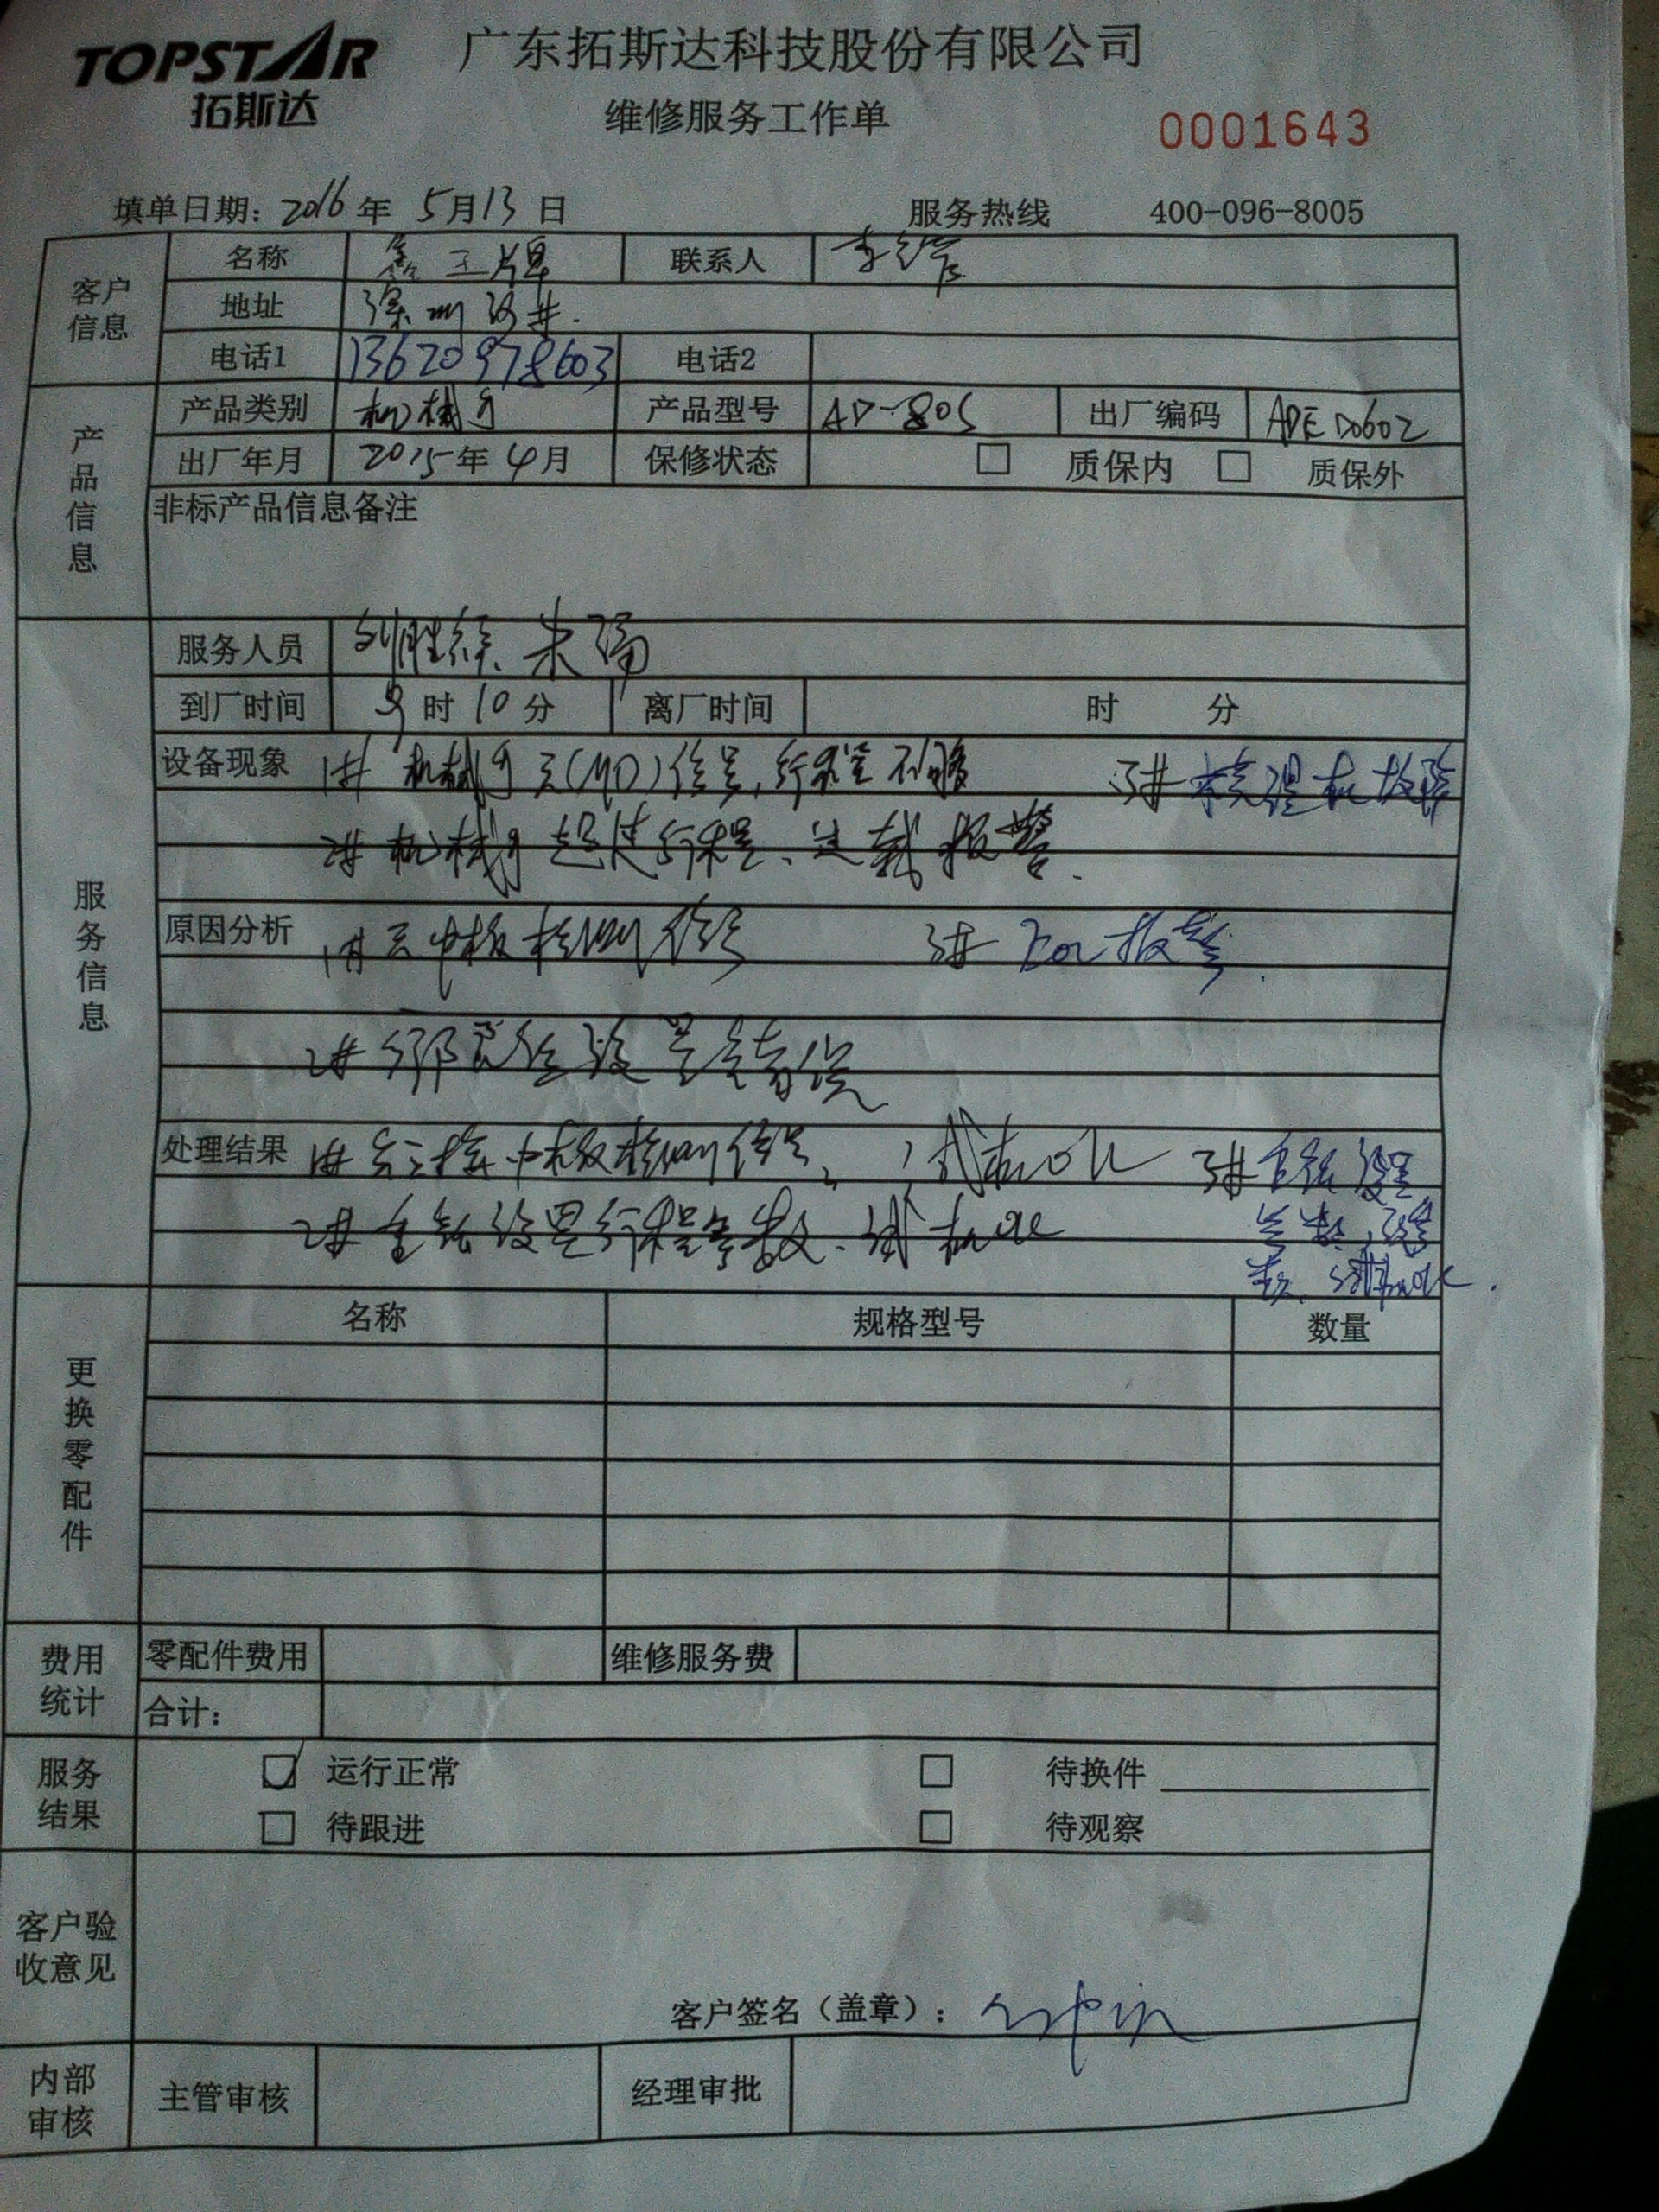 TOPSTAR 广东拓斯达科技股份有限公司
拓斯达 维修服务工作单
0001643
填单日期：2016年 5月13日 服务热线 400-096-8005
客户信息
名称 鑫王牌 联系人 李
地址 深圳沙井.
电话1 13620978603 电话2
产品信息
产品类别 机械手 产品型号 AD-80S 出厂编码
出厂年月 2015年4月 保修状态 □ 质保内 □ 质保外
非标产品信息备注
服务信息
服务人员 刘胜 朱
到厂时间 9时10分 离厂时间 时 分
设备现象 1# 机械手无(MO)信号,行程不够 3# 模温机故障
2# 机械手超过行程、过载报警.
原因分析 1#无中板检测信号 3# 报警.
2# 设置错误
处理结果 1# 中板检测信号, 试机OK 3# 设置
2# 重新设置行程参数、试机OK 参数,
试机OK.
更换零配件
名称 规格型号 数量
费用统计
零配件费用 维修服务费
合计：
服务结果
运行正常 □ 待换件
□ 待跟进 □ 待观察
客户验收意见
客户签名（盖章）：
内部审核
主管审核 经理审批